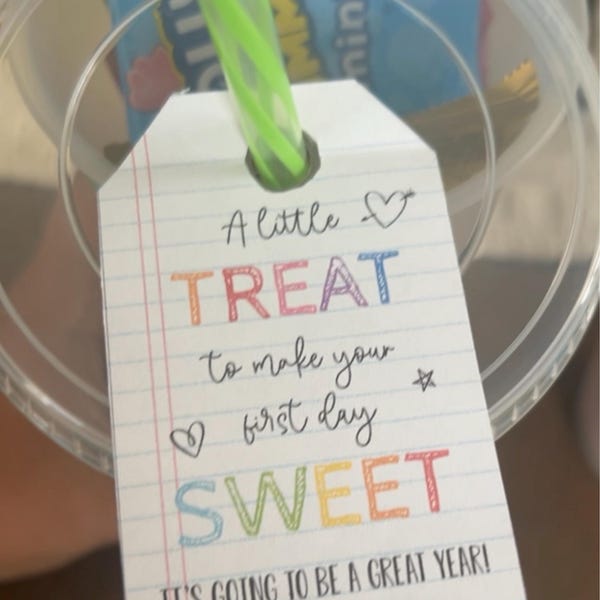 A little
TREAT
to make your
first day
SWEET
IT'S GOING TO BE A GREAT YEAR!